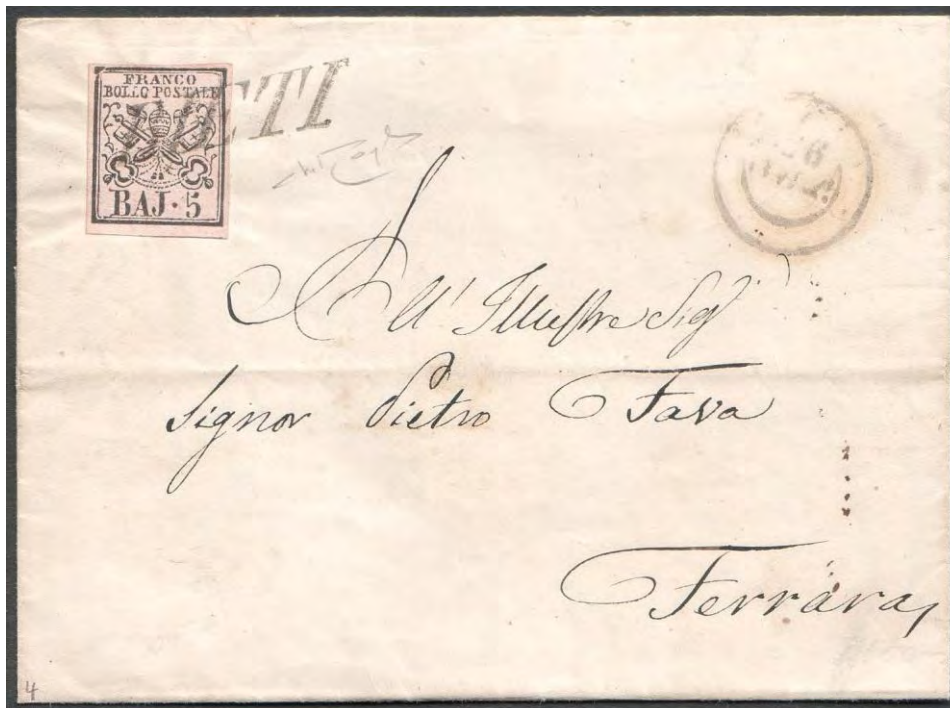 FRANCO
BOLLO POSTALE
BAJ · 5
All' Illustre Sig
Signor Pietro Fava
Ferrara,
4